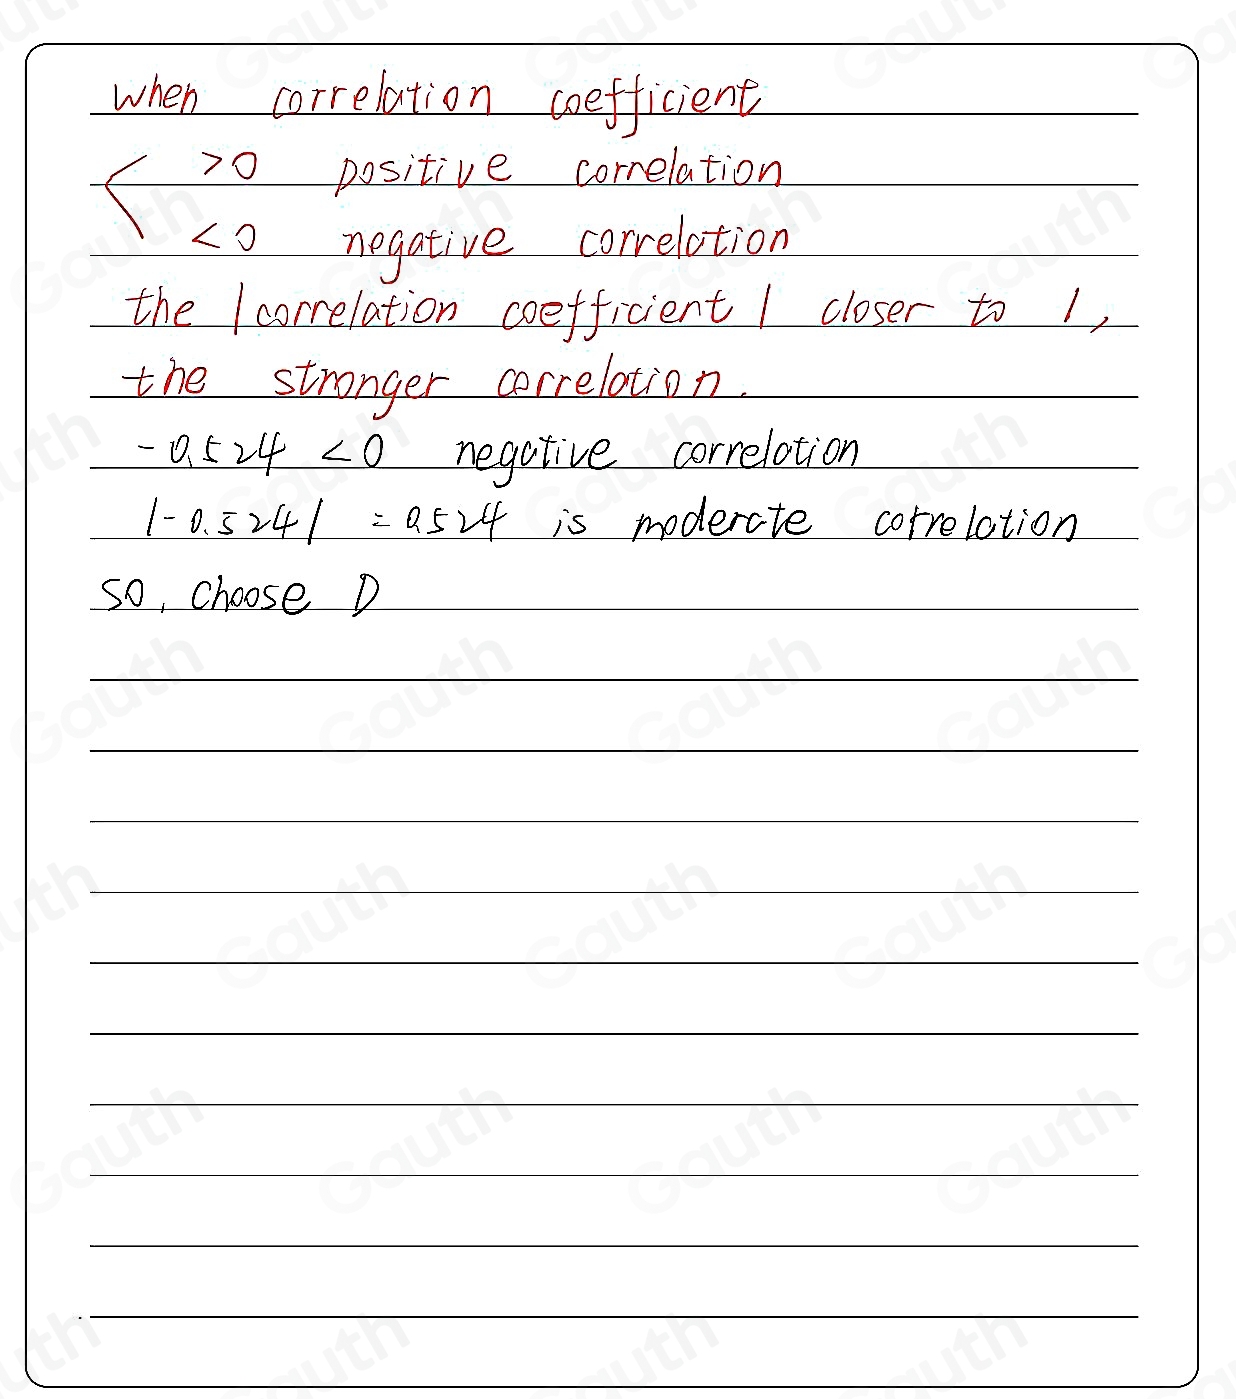 when correlation coefficient
>0 positive correlation
<0 negative correlation
the |correlation coefficient| closer to 1,
the stronger correlation.
-0.524 <0 negative correlation
|-0.524| = 0.524 is moderate correlation
so, choose D